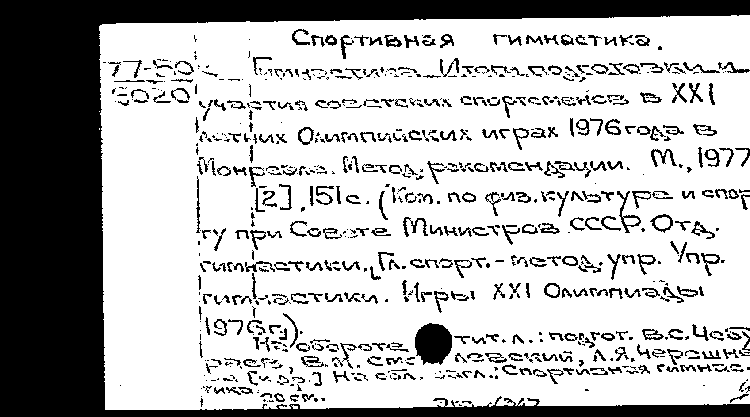 Спортивная гимнастика.
77-50
5020
Гимнастика. Итоги подготовки и
участия советских спортсменов в XXI
летних Олимпийских играх 1976 года в
Монреале. Метод. рекомендации. М., 1977
[2], 151 с. (Ком. по физ. культуре и спор
ту при Совете Министров СССР. Отд.
гимнастики. Гл. спорт.-метод. упр. Упр.
гимнастики. Игры XXI Олимпиады
1976 г.).
На обороте тит. л.: подгот. В.С. Чебу
раев, В.М. Смолевский, Л.Я. Черешне
ва [и др.] На обл. загл.: Спортивная гимнас
тика
20 см.